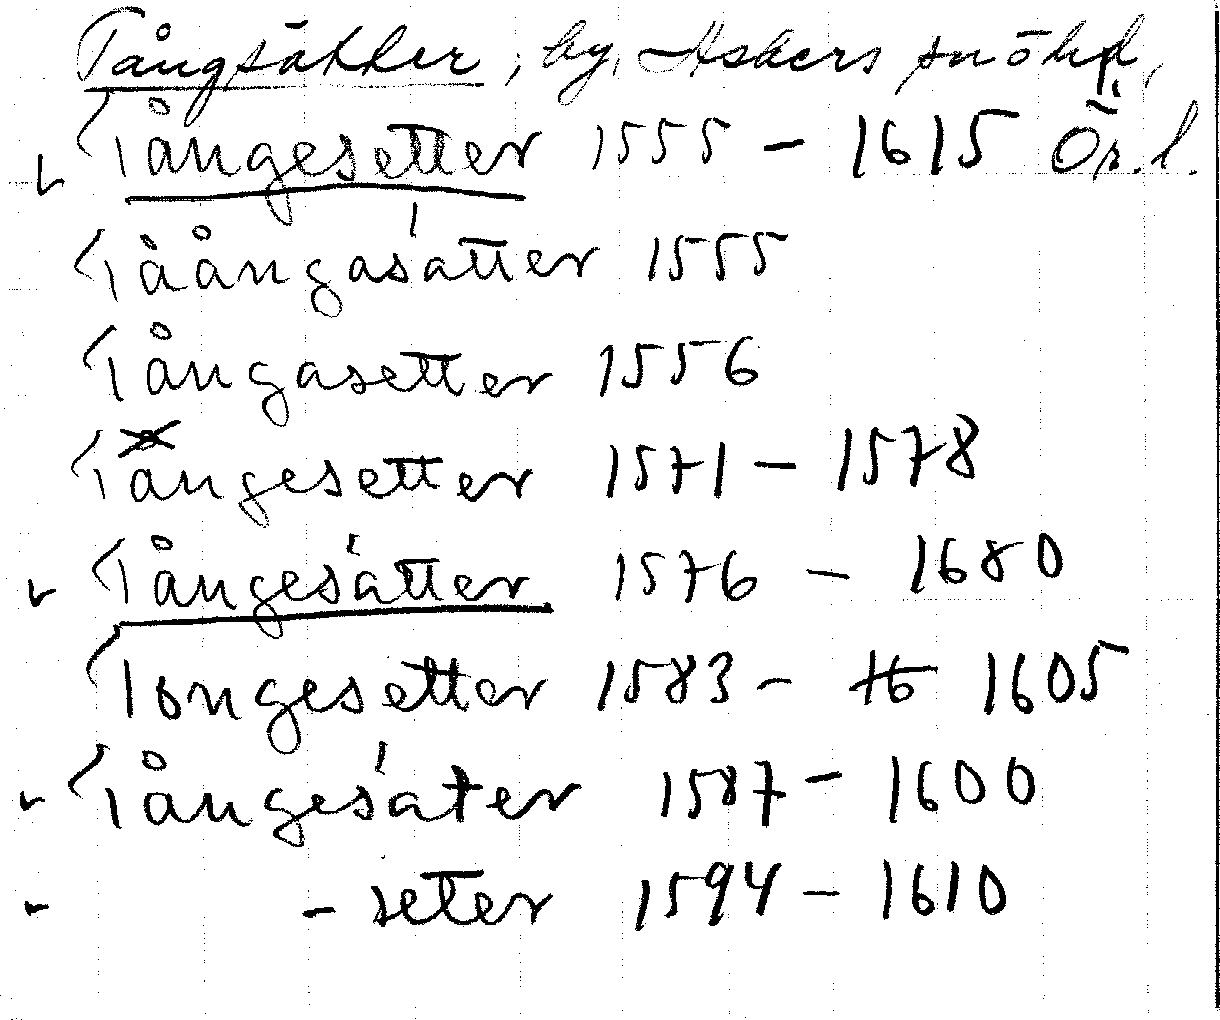 Tångsätter, by, Askers sn ö hd,
Tångesetter 1555 – 1615 Ör. l.
Tåångasátter 1555
Tångasetter 1556
Tangesetter 1571 – 1578
Tångesátter 1576 – 1680
Tongesetter 1583 – 16 1605
Tångesáter 1587 – 1600
– seter 1594 – 1610